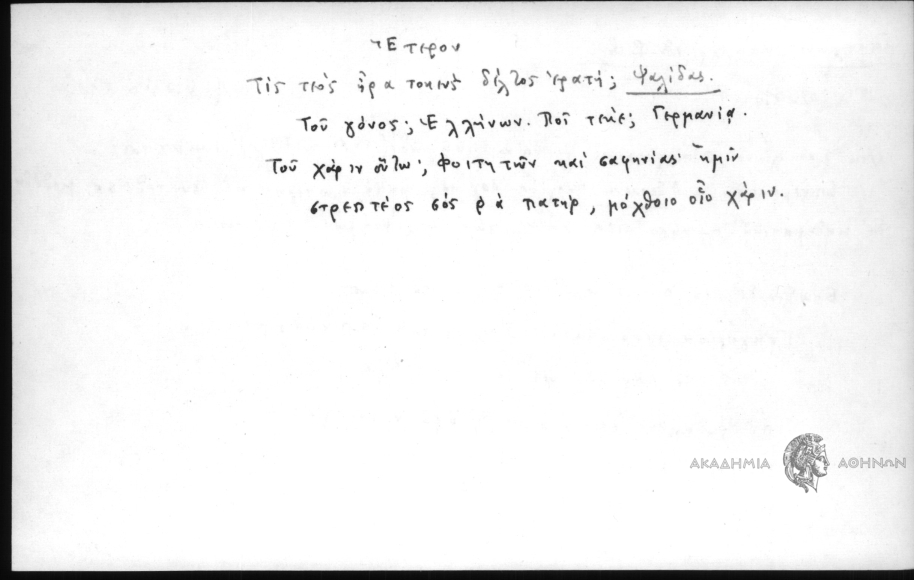 Ἕτερον
Τίς τεὸς ἦρα τοκεὺς δέλτος ἐρατή; Ψαλίδας.
Τοῦ γόνος; Ἑλλήνων. Ποῖ τεῦξε; Γερμανίᾳ.
Τοῦ χάριν οὕτω; Φοιτητῶν καὶ σαφηνίας· ἡμῖν
στρεπτέος σός ῥὰ πατήρ, μόχθοιο οἷο χάριν.
ΑΚΑΔΗΜΙΑ ΑΘΗΝΩΝ